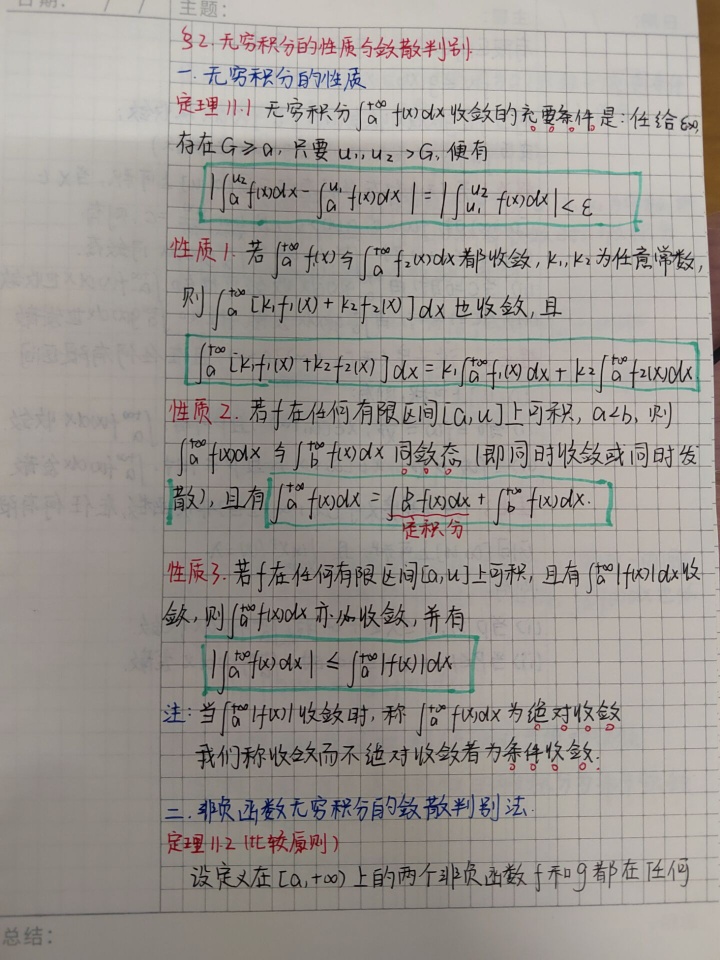 日期: / /
主题:
§2. 无穷积分的性质与敛散判别
一. 无穷积分的性质
定理11.1 无穷积分∫_a^{+∞} f(x)dx收敛的充要条件是: 任给ε>0,
存在G≥a, 只要u₁, u₂ >G, 便有
|∫_a^{u₂} f(x)dx - ∫_a^{u₁} f(x)dx| = |∫_{u₁}^{u₂} f(x)dx| < ε
性质1. 若∫_a^{+∞} f₁(x)与∫_a^{+∞} f₂(x)dx都收敛, k₁, k₂为任意常数,
则∫_a^{+∞} [k₁f₁(x) + k₂f₂(x)]dx也收敛, 且
∫_a^{+∞} [k₁f₁(x) + k₂f₂(x)]dx = k₁∫_a^{+∞} f₁(x)dx + k₂∫_a^{+∞} f₂(x)dx
性质2. 若f在任何有限区间[a,u]上可积, a<b, 则
∫_a^{+∞} f(x)dx与∫_b^{+∞} f(x)dx同敛态 (即同时收敛或同时发
散), 且有∫_a^{+∞} f(x)dx = ∫_a^b f(x)dx + ∫_b^{+∞} f(x)dx.
定积分
性质3. 若f在任何有限区间[a,u]上可积, 且有∫_a^{+∞} |f(x)|dx收
敛, 则∫_a^{+∞} f(x)dx亦必收敛, 并有
|∫_a^{+∞} f(x)dx| ≤ ∫_a^{+∞} |f(x)|dx
注: 当∫_a^{+∞} |f(x)|收敛时, 称∫_a^{+∞} f(x)dx为绝对收敛
我们称收敛而不绝对收敛者为条件收敛.
二. 非负函数无穷积分的敛散判别法.
定理11.2 (比较原则)
设定义在[a,+∞)上的两个非负函数f和g都在任何
总结: